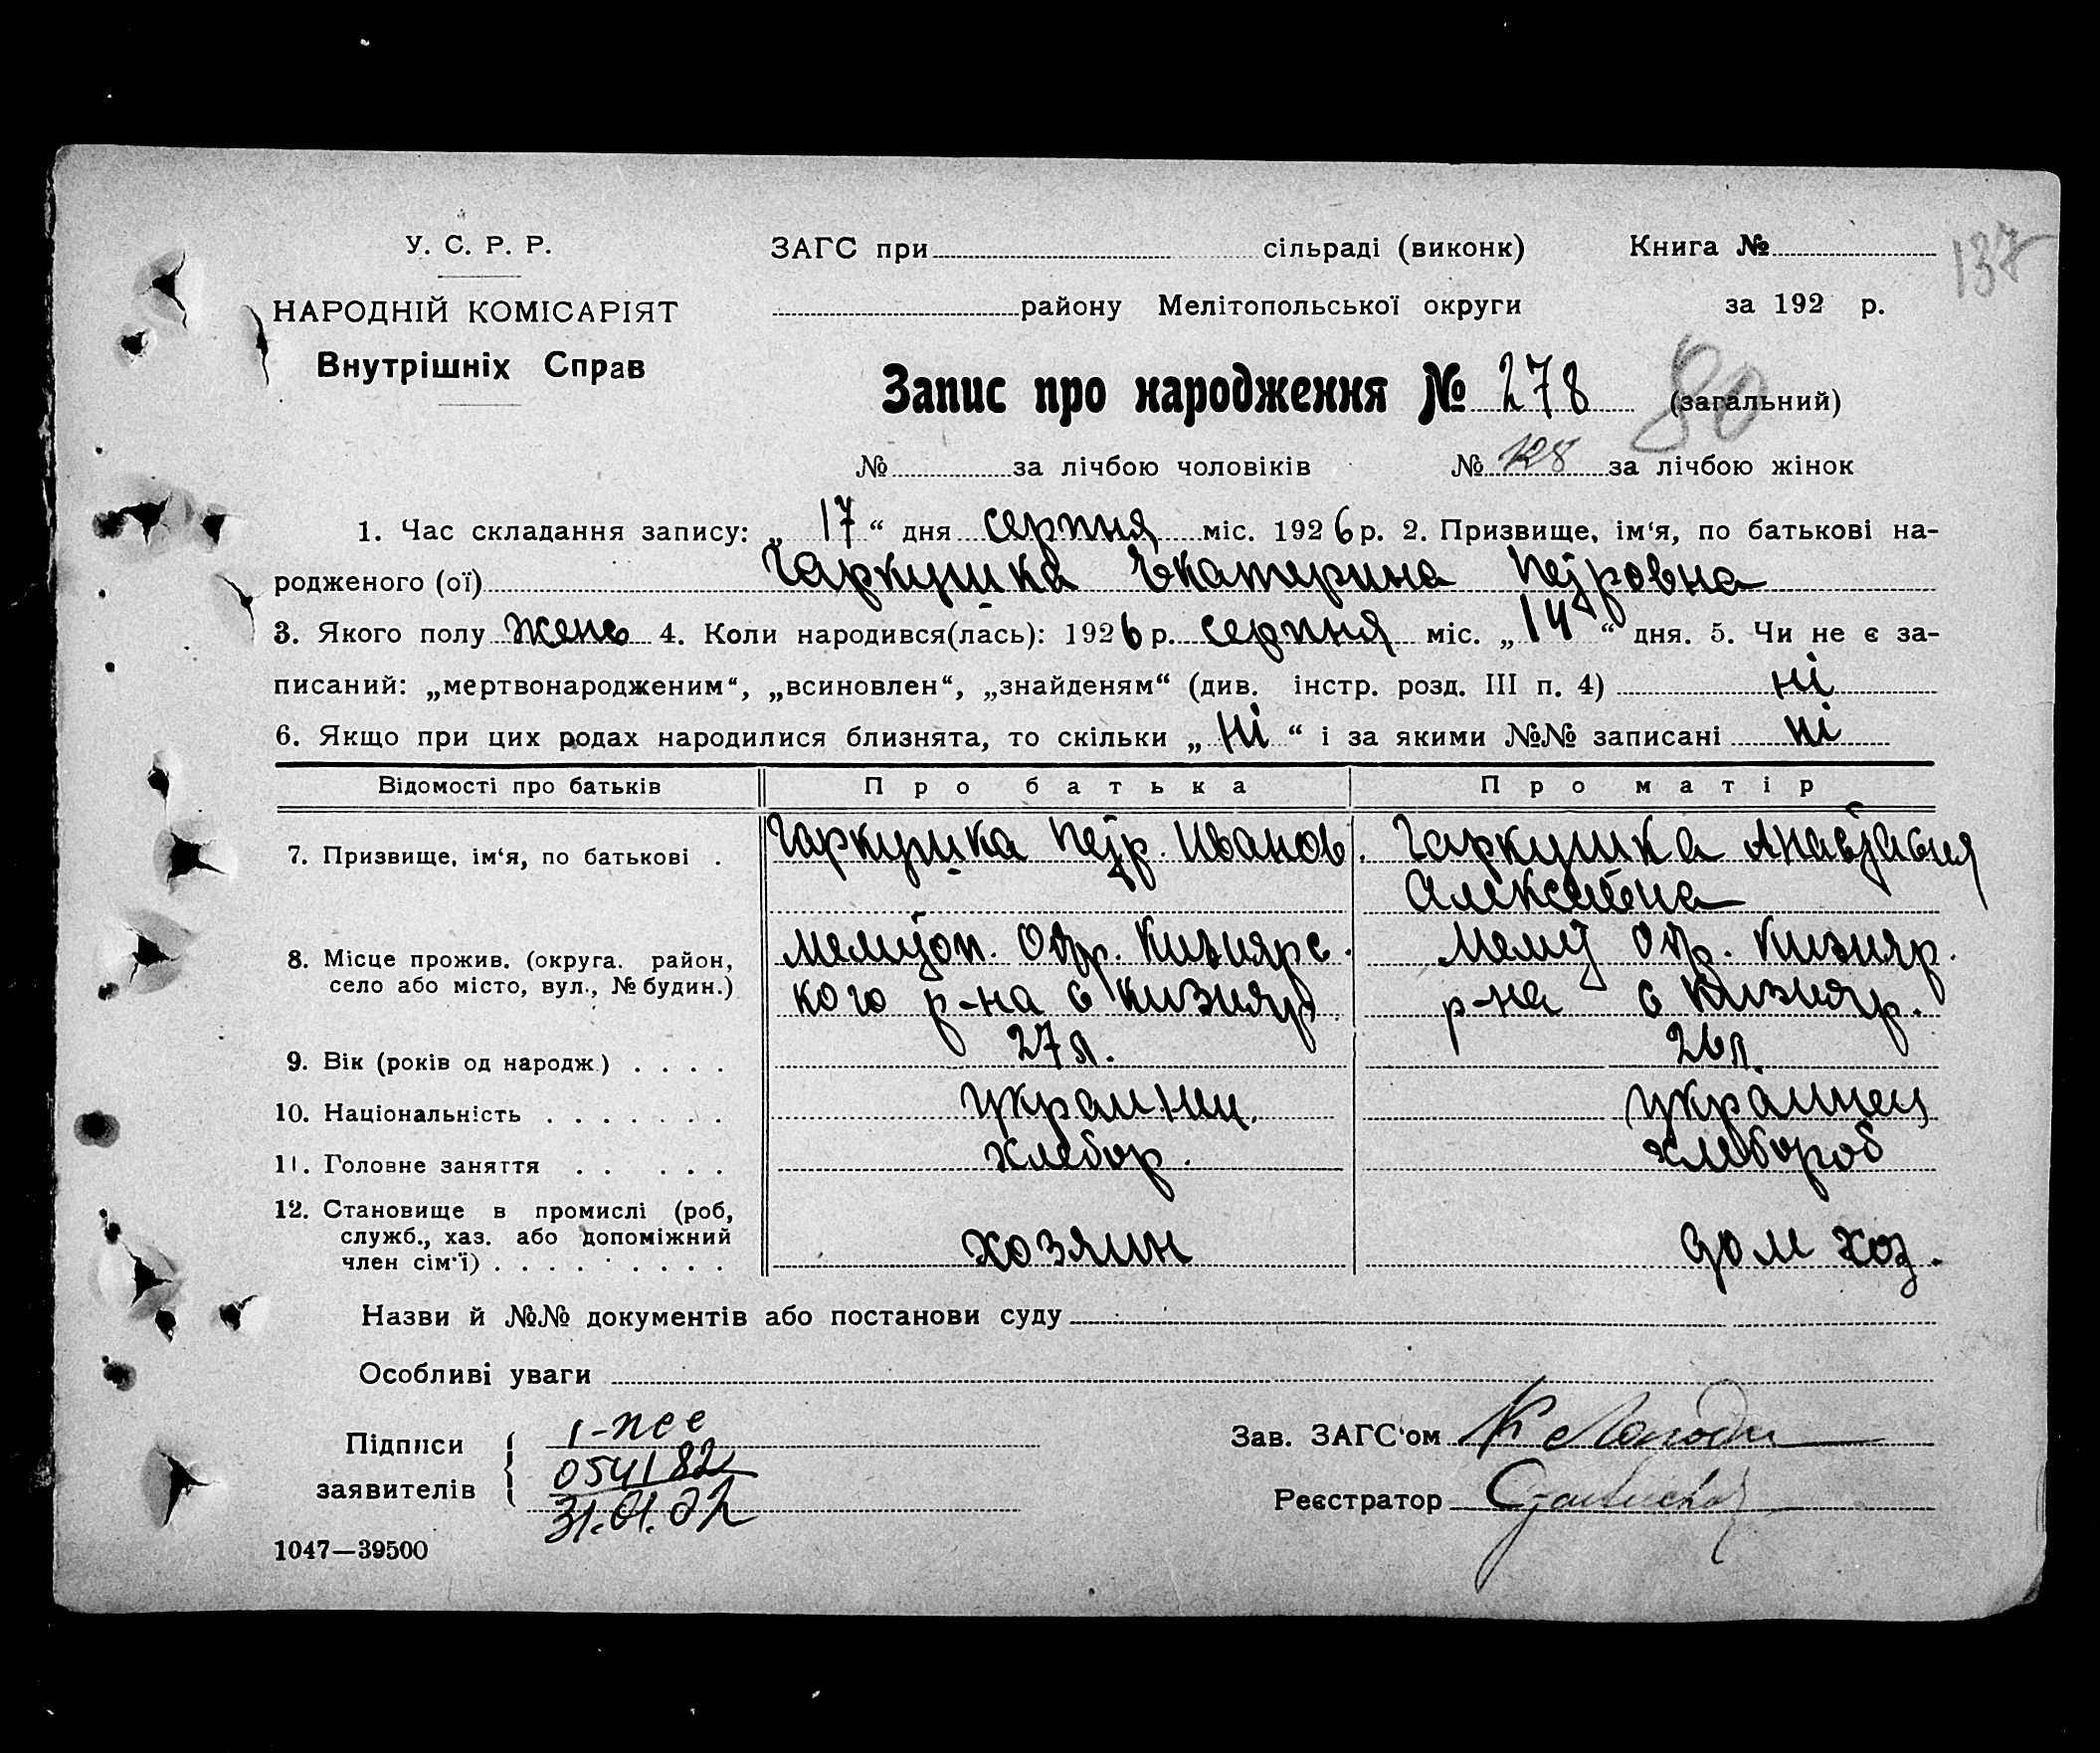 У. С. Р. Р.
ЗАГС при сільраді (виконк) Книга № 137
НАРОДНІЙ КОМІСАРІЯТ
району Мелітопольської округи за 192 р.
Внутрішніх Справ
Запис про народження № 278 (загальний) 80
№ за лічбою чоловіків № 128 за лічбою жінок
1. Час складання запису: „ 17 “ дня серпня міс. 1926 р. 2. Призвище, ім‘я, по батькові на-
родженого (ої) Гаркушка Екатерина Петровна
3. Якого полу жень 4. Коли народився(лась): 1926 р. серпня міс. „ 14 “ дня. 5. Чи не є за-
писаний: „мертвонародженим“, „всиновлен“, „знайденям“ (див. інстр. розд. III п. 4) ні
6. Якщо при цих родах народилися близнята, то скільки „ ні “ і за якими №№ записані ні
Відомості про батьків Про батька Про матір
7. Призвище, ім‘я, по батькові . Гаркушка Петр. Иванов. Гаркушка
Алексеевна
8. Місце прожив. (округа. район, Мелитоп. Окр. Кизиярс. Мелит Окр. Кизияр.
село або місто, вул., № будин.) кого р-на с Кизияр. р-на с Кизияр.
9. Вік (років од народж.) . . . . 27 л. 26 л.
10. Національність . . . . . . . украинец. украинец
11. Головне заняття . . . . . хлебор. хлебороб
12. Становище в промислі (роб,
служб., хаз. або допоміжний хозяин дом хоз.
член сім‘ї) . . . . . . . . .
Назви й №№ документів або постанови суду
Особливі уваги
Підписи
заявителів
054182
31.01.02
Зав. ЗАГС‘ом
Реєстратор
1047—39500